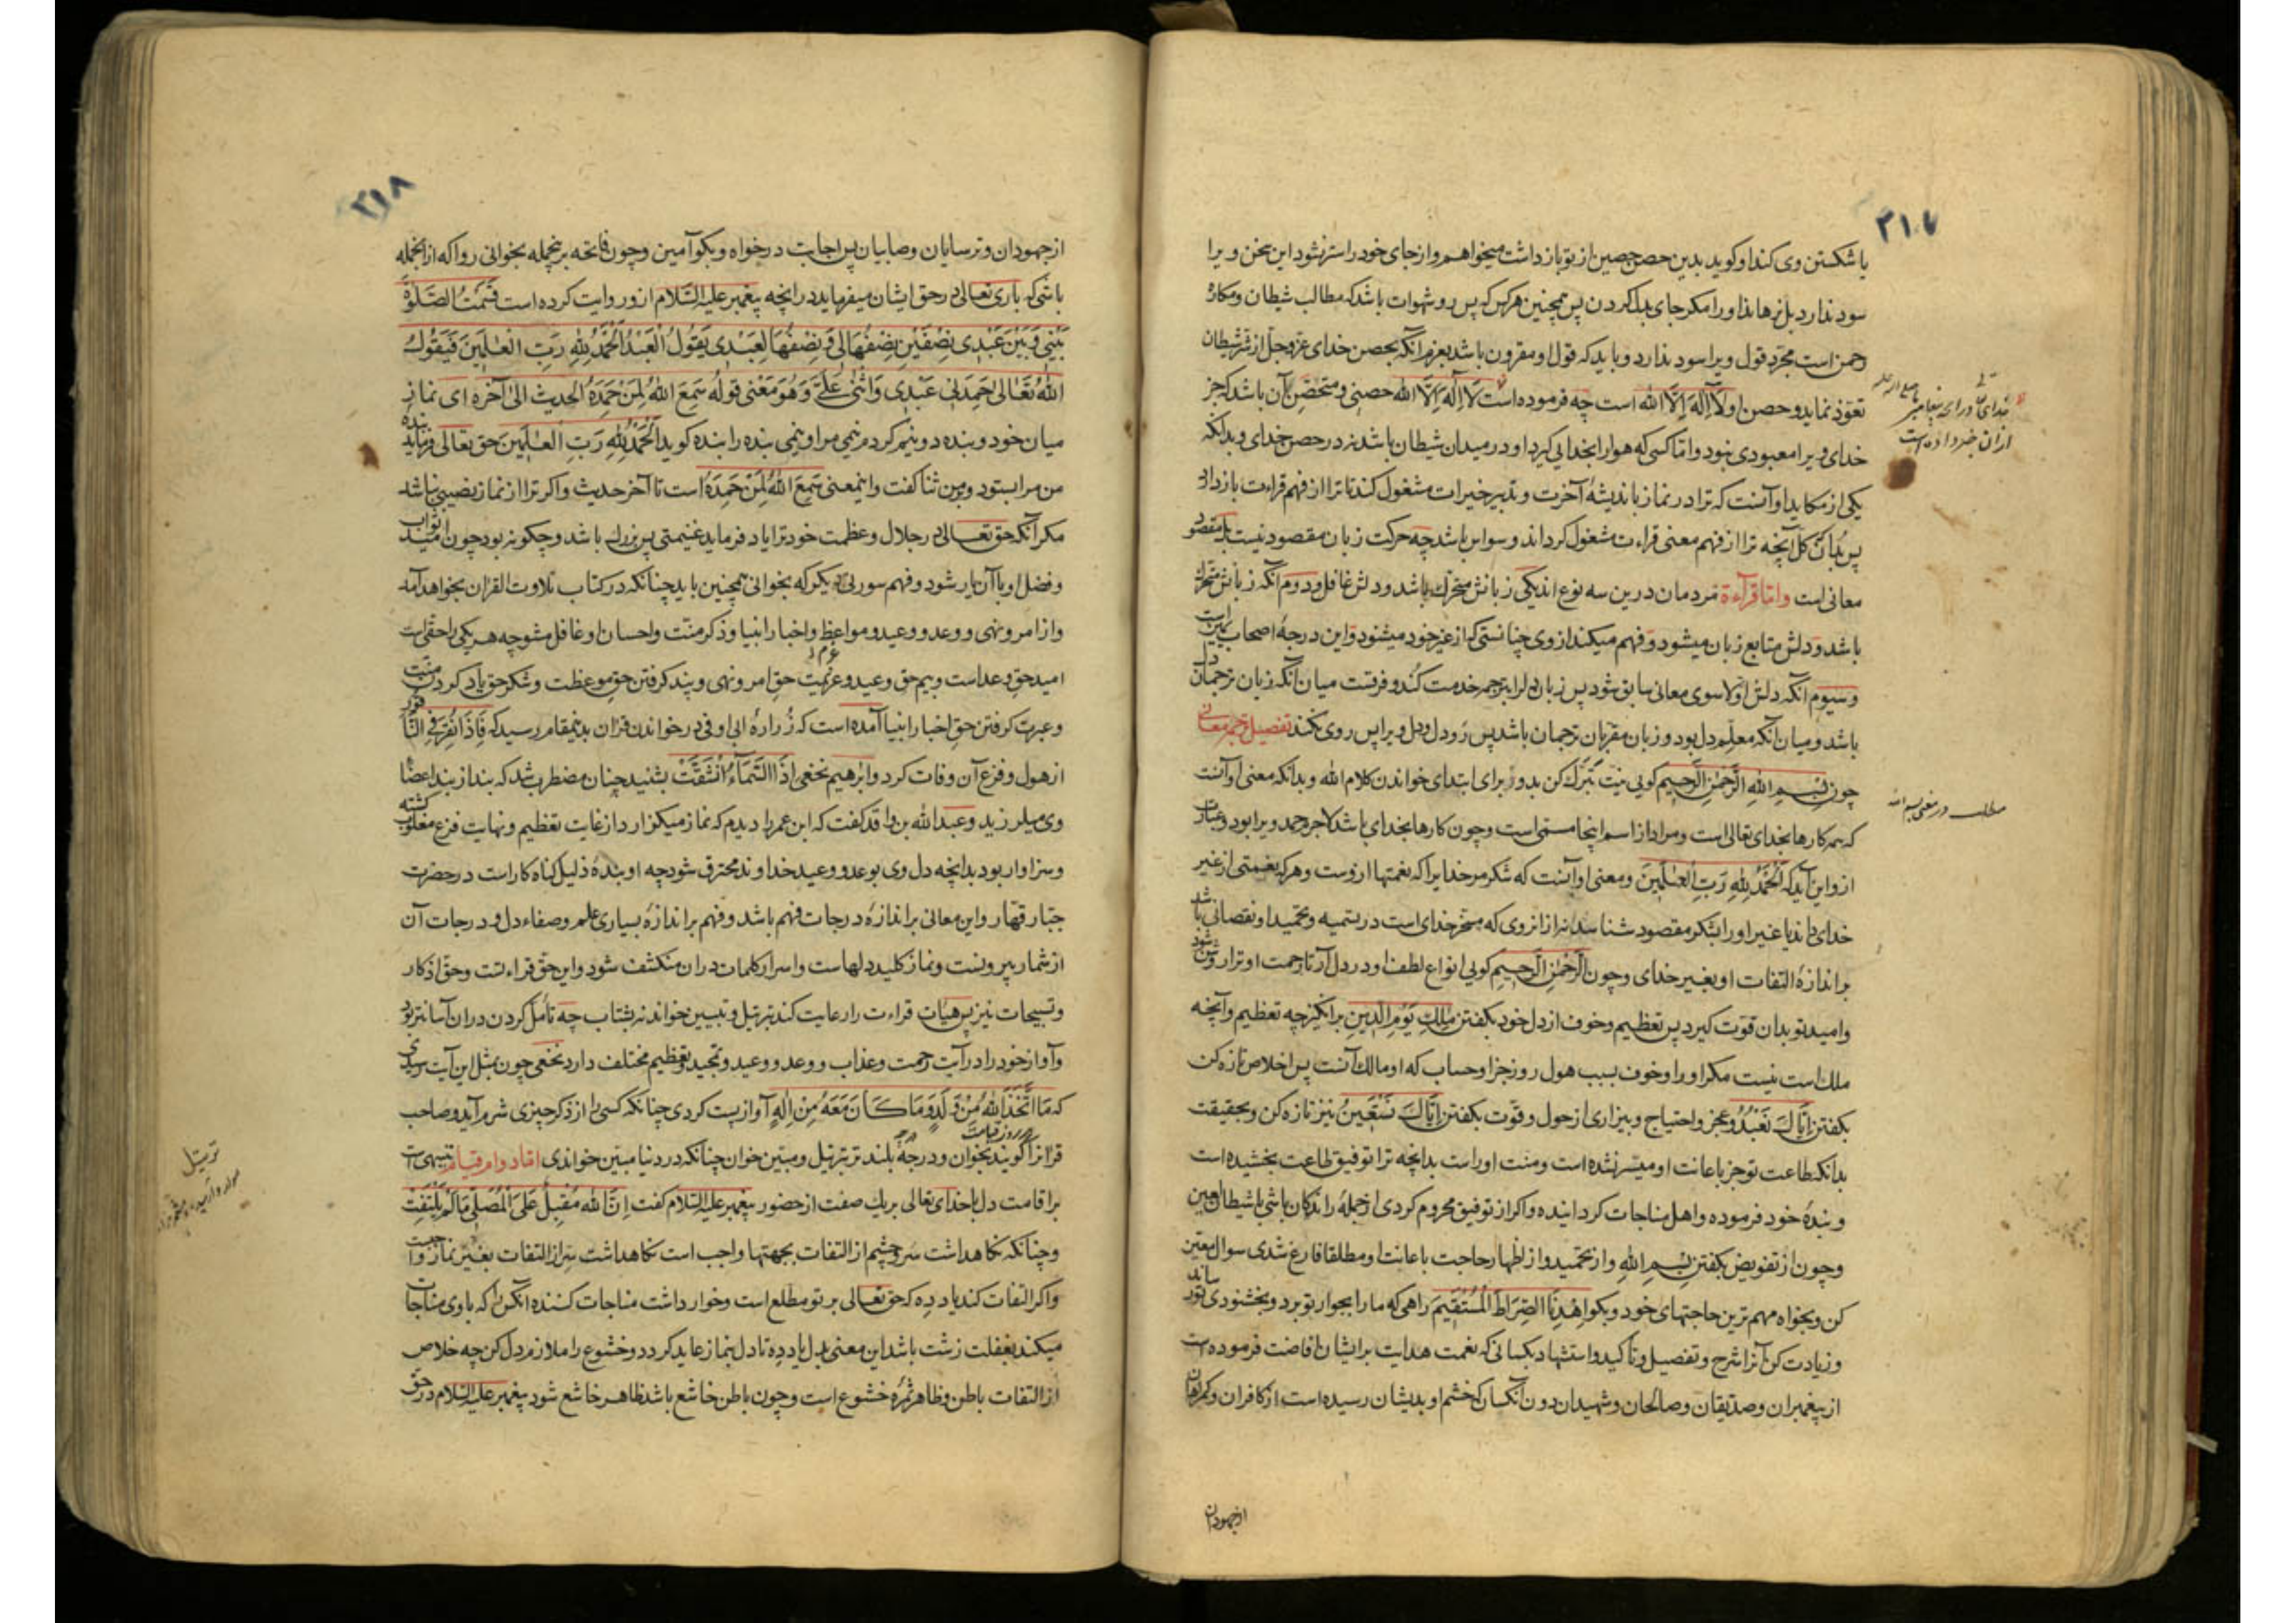 ۲۱۷
یا شکستن وی کند او کوید بدین حصن حصین از تو باز داشت میخواهم و از جای خود راستر نشود این سخن ویرا
سود ندارد بل نرهاند او را مکر جای بدل کردن پس همچنین هرکس که پس رو شهوات باشد که مطالب شیطان و مکاره
رحمن است مجرد قول ویرا سود ندارد و باید که قول او مقرون باشد بعزم آنکه بحصن خدای عز و جل از شر شیطان
تعوذ نماید و حصن او لا اله الا الله است چه فرموده است لا اله الا الله حصنی و متحصن بآن باشد که جز
خدای ویرا معبودی نبود و اما کسی که هوا را بخدایی کیرد او در میدان شیطان باشد نه در حصن خدای و بدانکه
یکی از مکاید او آنست که ترا در نماز باندیشهٔ آخرت و تدبیر خیرات مشغول کند تا ترا از فهم قراءت باز دارد
پس بدان که کل آنچه ترا از فهم معنی قراءت مشغول کرداند وسواس باشد چه حرکت زبان مقصود نیست بل مقصود
معانی است واما قرآءة مردمان درین سه نوع اند یکی زبانش متحرک باشد و دلش غافل و دوم آنکه زبانش متحرک
باشد و دلش متابع زبان میشود و فهم میکند از وی چنانستی که از غیر خود میشنود و این درجهٔ اصحاب یمین است
وسیوم آنکه دلش اولا سوی معانی سابق شود پس زبان دل را بترجمه خدمت کند و فرقست میان آنکه زبان ترجمان دل
باشد و میان آنکه معلم دل بود و زبان مقربان ترجمان باشد پس رو دل و دل ویرا پس روی نکند تفصیل ترجمه معانی
چون بسم الله الرحمن الرحیم کویی نیت تبرک کن بدو برای ابتدای خواندن کلام الله و بدانکه معنی او آنست
که همه کارها بخدای تعالی است و مراد از اسم اینجا مسمی است وچون کارها بخدای باشد لاجرم حمد ویرا بود
ازو این آید که الحمد لله رب العلمین ومعنی او آنست که شکر مر خدایرا که نعمتها ازوست وهرکه نعمتی از غیر
خدای داند یا غیر او را بشکر مقصود شناسد نه از انروی که مسخر خدای است در تسمیه وتحمید او نقصانی باشد
بر اندازهٔ التفات او بغیر خدای وچون الرحمن الرحیم کویی انواع لطف او در دل آر تا رحمت او ترا روشن شود
وامید تو بدان قوت کیرد پس تعظیم وخوف از دل خود بکفتن ملک یوم الدین برانکیز چه تعظیم وآنچه
ملک است نیست مکر او را وخوف بسبب هول روز جزا وحساب که او مالک آنست پس اخلاص تازه کن
بکفتن ایاک نعبد وعجز واحتیاج وبیزاری از حول وقوت بکفتن ایاک نستعین نیز تازه کن وبحقیقت
بدانکه طاعت تو جز باعانت او میسر نشده است ومنت او راست بدانچه ترا توفیق طاعت بخشیده است
و بندهٔ خود فرموده واهل مناجات کردانیده واکر از توفیق محروم کردی از جملهٔ راندکان باشی با شیطان لعین
وچون از تفویض بکفتن بسم الله واز تحمید واز اظهار حاجت باعانت او مطلقا فارغ شدی سوال معین
کن وبخواه مهم ترین حاجتهای خود وبکو اهدنا الصراط المستقیم راهی که ما را بجوار تو برد وبخشنودی تو رساند
و زیادت کن آنرا شرح وتفصیل وتأکید واستشهاد بکسانی که نعمت هدایت بر ایشان افاضت فرموده است
از پیغمبران وصدیقان وصالحان وشهیدان دون آنکسان که خشم او بدیشان رسیده است از کافران وکمراهان
ازجهودان
خدای تعالی ورای پیغامبر صلی الله علیه
ازان خبر داده است
مطلب در معنی بسم الله
۲۱۸
ازجهودان وترسایان وصابیان پس اجابت درخواه وبکو آمین وچون فاتحه برینجمله بخوانی روا که ازانجمله
باشی که باری تعالی در حق ایشان میفرماید درانچه پیغمبر علیه السلام ازو روایت کرده است قسمت الصلوة
بینی وبین عبدی نصفین نصفها لی ونصفها لعبدی یقول العبد الحمد لله رب العلمین فیقول
الله تعالی حمدنی عبدی واثنی علی وهو معنی قوله سمع الله لمن حمده الحدیث الی آخره ای نماز
میان خود وبنده دو نیم کردم نیمی مرا ونیمی بنده را بنده کوید الحمد لله رب العلمین حق تعالی فرماید بنده
من مرا بستود وبرمن ثنا کفت واینمعنی سمع الله لمن حمده است تا آخر حدیث واکر ترا از نماز نصیبی نباشد
مکر آنکه حق تعالی در جلال وعظمت خود ترا یاد فرماید غنیمتی بس بزرک باشد وچکونه بود چون امید ثواب
وفضل او با آن یار شود وفهم سورتی دیکر که بخوانی همچنین باید چنانکه در کتاب تلاوت القرآن بخواهد آمد
واز امر ونهی و وعد و وعید ومواعظ واخبار انبیا وذکر منت واحسان او غافل مشو چه هر یکی را حقی است
امید حق وعداست وبیم حق وعید وعزیمت حق امر ونهی وپند کرفتن حق موعظت وشکر حق یاد کردن منت
وعبرت کرفتن حق اخبار انبیا آمده است که زرارهٔ ابی اوفی در خواندن قرآن بدینمقام رسید که فاذا نقر فی الناقور
از هول وفزع آن وفات کرد وابرهیم نخعی اذا السماء انشقت بشنید چنان مضطرب شد که بند از بند اعضای
وی میلرزید وعبد الله بن واقد کفت که ابن عمر را دیدم که نماز میکزارد از غایت تعظیم ونهایت فزع مغلوب کشته
وسزاوار بود بدانچه دل وی بوعد و وعید خداوند محترق شود چه او بندهٔ ذلیل کناه کار است در حضرت
جبار قهار واین معانی بر اندازهٔ درجات فهم باشد وفهم بر اندازهٔ بسیاری علم وصفاء دل ودرجات آن
از شمار بیرونست ونماز کلید دلهاست واسرار کلمات دران منکشف شود واین حق قراءتست وحق اذکار
وتسبیحات نیز پس هیأت قراءت را رعایت کند بترتیل وتبیین خواند نه بشتاب چه تأمل کردن دران آسانتر بود
وآواز خود را در آیت رحمت وعذاب و وعد و وعید وتمجید وتعظیم مختلف دارد نخعی چون بمثل این آیت رسیدی
که ما اتخذ الله من ولد وما کان معه من اله آواز پست کردی چنانکه کسی را از ذکر چیزی شرم آید وصاحب
قرآنرا روز قیامت کویند بخوان ودرجه درجه بلند تر بترتیل ومبین خوان چنانکه در دنیا مبین خواندی اما دوام قیام تنبیهی است
بر اقامت دل با خدای تعالی بر یک صفت از حضور پیغمبر علیه السلام کفت ان الله مقبل علی المصلی ما لم یلتفت
وچنانکه نکاهداشت سر وچشم از التفات بجهتها واجب است نکاهداشت سر از التفات بغیر نماز واجبست
واکر التفات کند یاد ده که حق تعالی بر تو مطلع است وخوار داشت مناجات کننده آنکس را که با وی مناجات
میکند بغفلت زشت باشد این معنی بدل یاد ده تا دل بنماز عاید کردد وخشوع را ملازم دل کن چه خلاص
از التفات باطن وظاهر ثمرهٔ خشوع است وچون باطن خاشع باشد ظاهر خاشع شود پیغمبر علیه السلام در حق
ترتیل